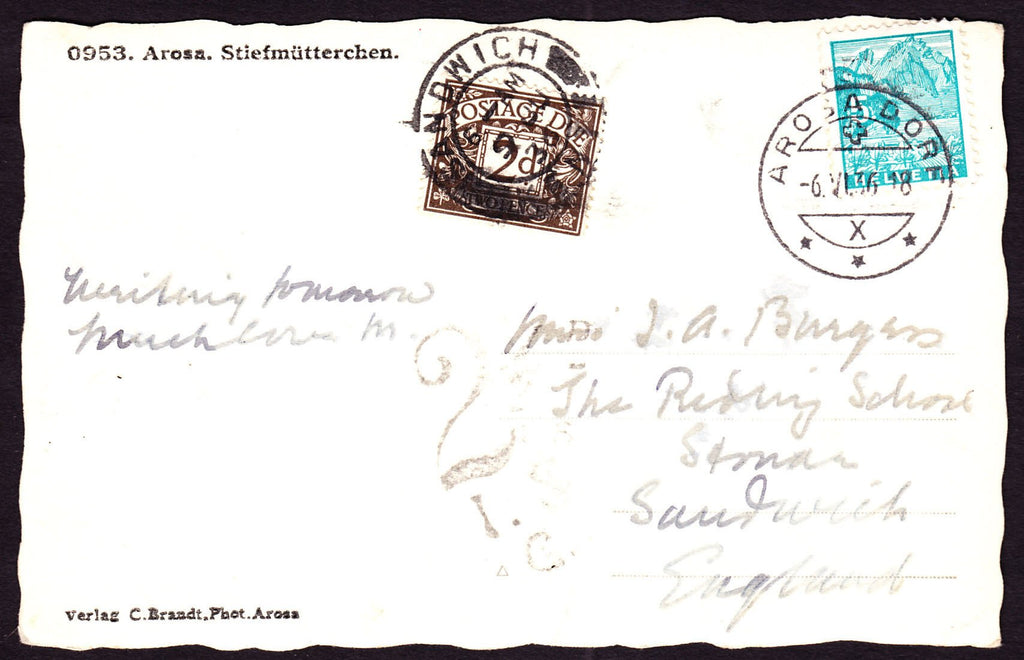 0953. Arosa. Stiefmütterchen.
SANDWICH
POSTAGE DUE
2d
TWO PENCE
HELVETIA
AROSA DORF
-6.VI.36-18
X
Writing tomorrow
Much love M.
Miss J. A. Burgess
The Riding School
Stonar
Sandwich
England
2
Verlag C. Brandt, Phot. Arosa